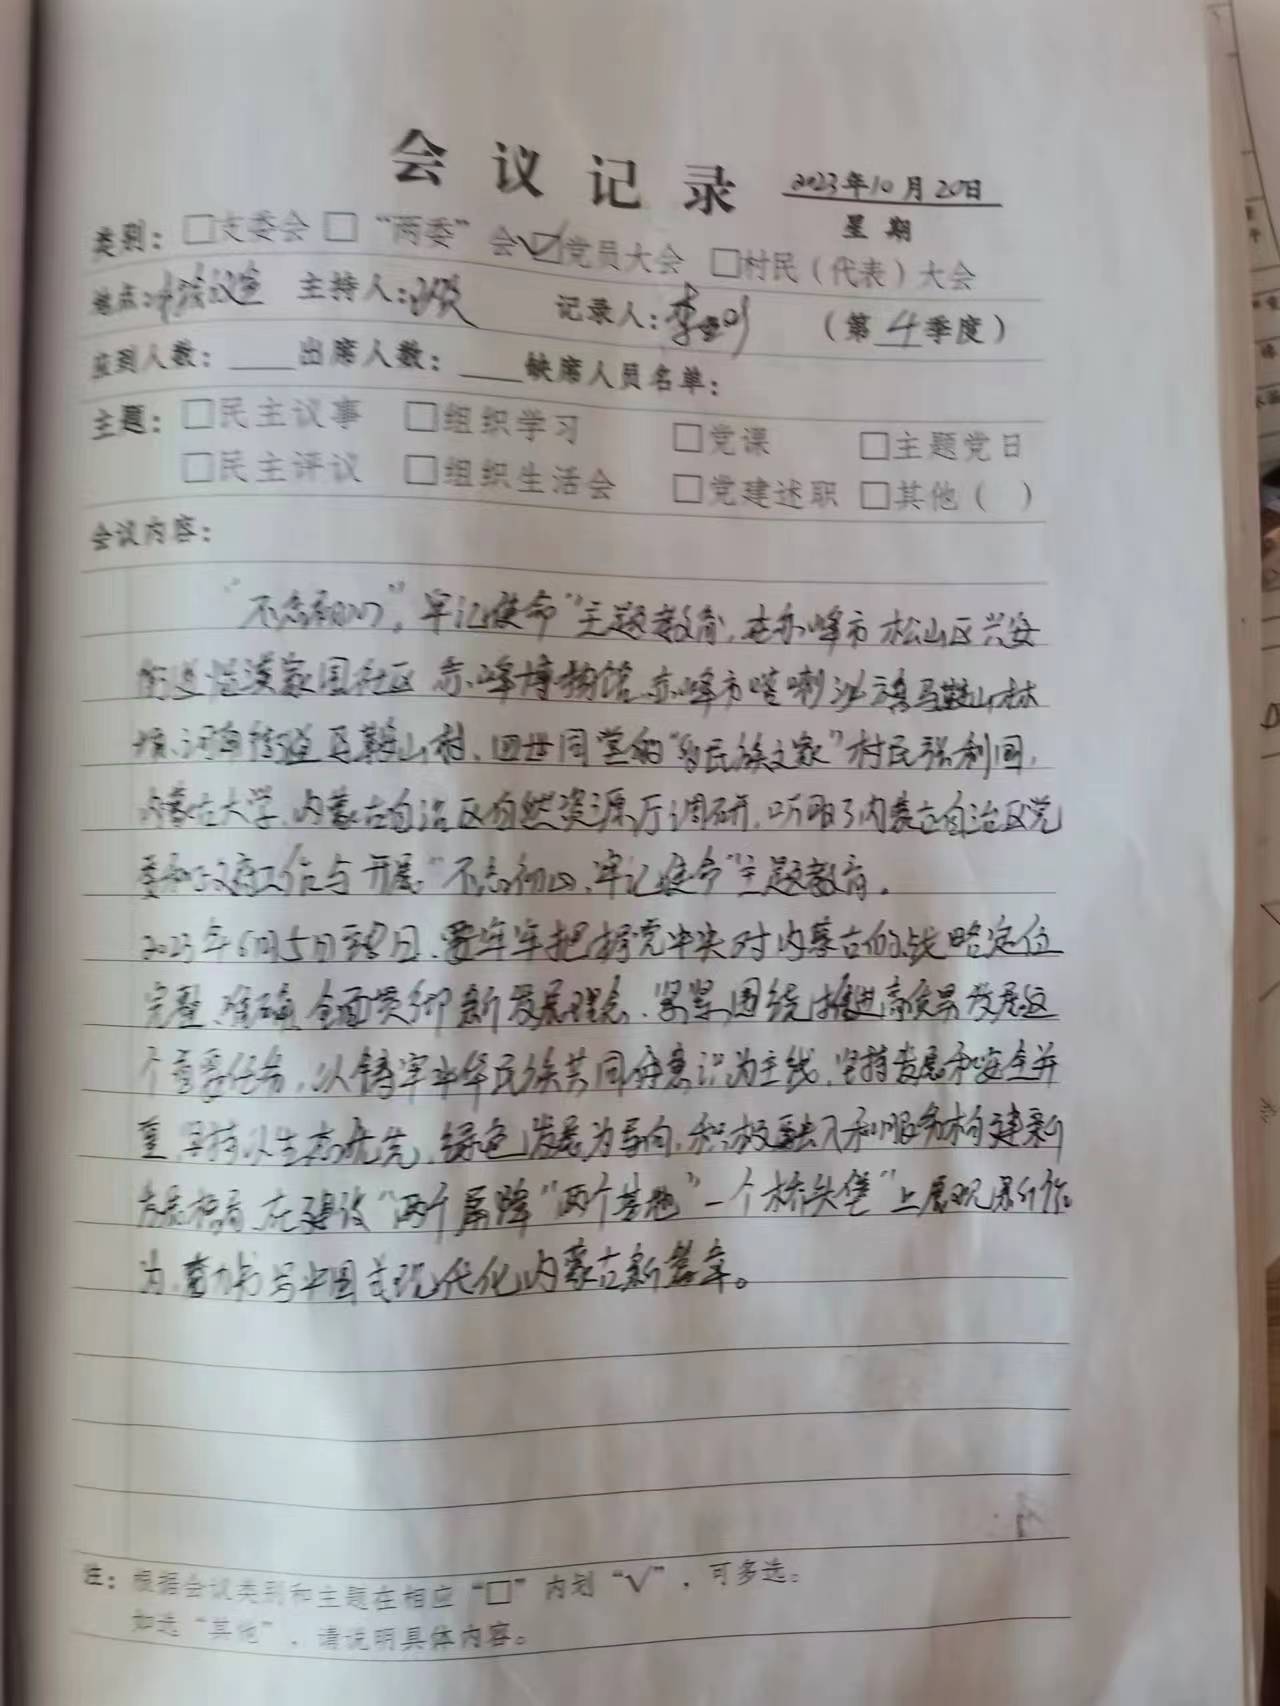 会议记录 2023年10月20日
星期
类别：□支委会 □“两委”会 ☑党员大会 □村民（代表）大会
地点：村会议室 主持人： 记录人：李 （第4季度）
应到人数：____出席人数：____缺席人员名单：
主题：□民主议事 □组织学习 □党课 □主题党日
□民主评议 □组织生活会 □党建述职 □其他（ ）
会议内容：
“不忘初心”，牢记使命”主题教育，在赤峰市松山区兴安
街道临潢家园社区、赤峰博物馆、赤峰市喀喇沁旗马鞍山林
场、河南街道马鞍山村、四世同堂的“多民族之家”村民张利国，
内蒙古大学、内蒙古自治区自然资源厅调研，听取了内蒙古自治区党
委和政府工作与开展“不忘初心、牢记使命”主题教育。
2023年6月5日至8日、要牢牢把握党中央对内蒙古的战略定位
完整、准确、全面贯彻新发展理念、紧紧围绕推进高质量发展这
个首要任务，以铸牢中华民族共同体意识为主线，坚持发展和安全并
重，坚持以生态优先、绿色发展为导向，积极融入和服务构建新
发展格局，在建设“两个屏障“两个基地”一个桥头堡”上展现新作
为，奋力书写中国式现代化内蒙古新篇章。
注：根据会议类别和主题在相应“□”内划“√”，可多选。
如选“其他”，请说明具体内容。